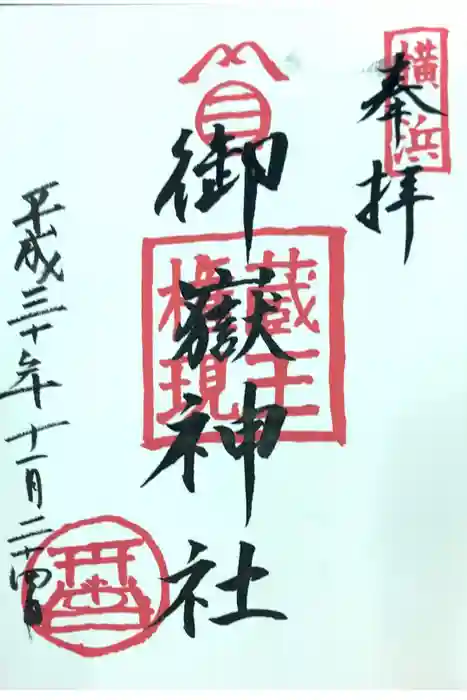 横浜
奉拝
三
御嶽神社
蔵王
権現
平成三十年十一月二十四日